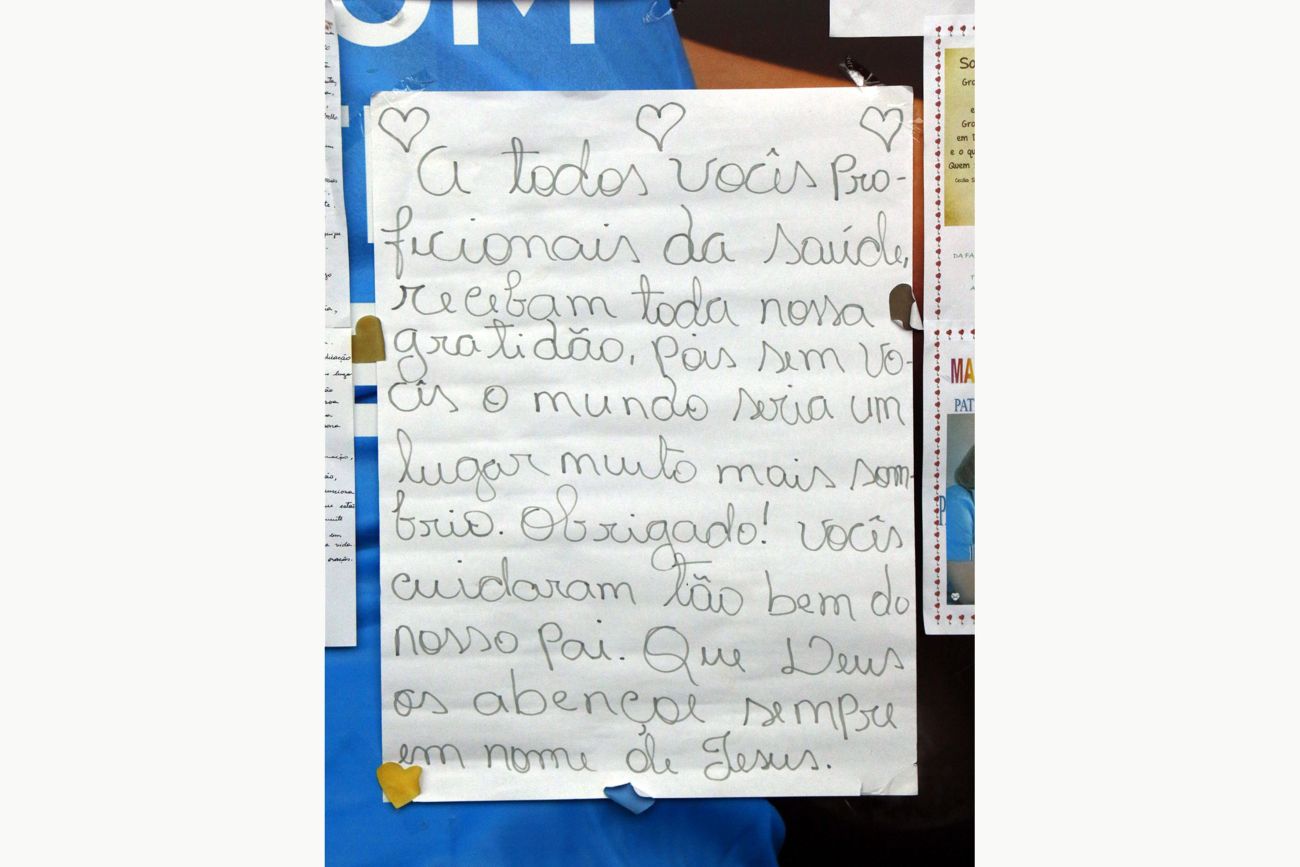 OM
A todos vocês pro-
ficionais da saúde,
recebam toda nossa
gratidão, pois sem vo-
cês o mundo seria um
lugar muito mais som-
brio. Obrigado! Vocês
cuidaram tão bem do
nosso pai. Que Deus
os abençoe sempre
em nome de Jesus.
Gra
e
Gra
em
e o qu
Quem
DA FA
MA
PAT
vida
oração.